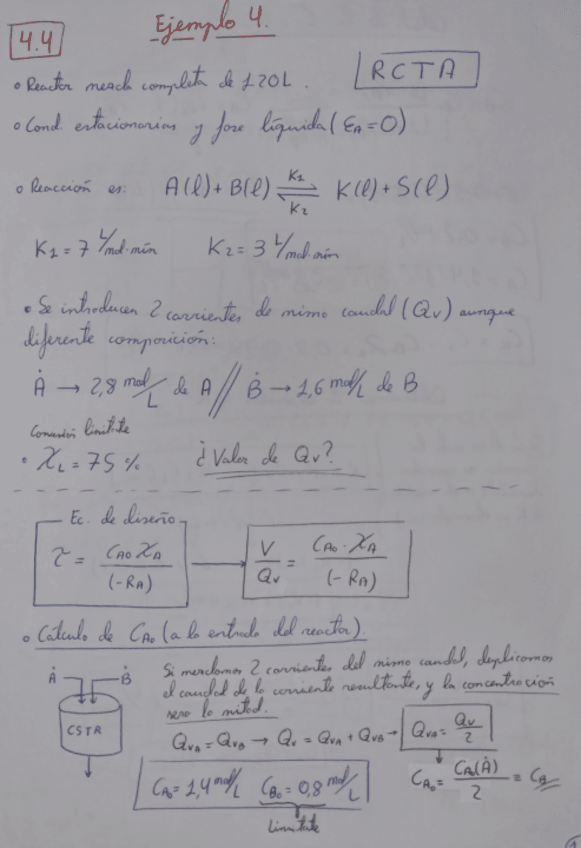 4.4
Ejemplo 4.
• Reactor mezcla completa de 120L.
RCTA
• Cond. estacionarias y fase líquida (ε_A=0)
• Reacción es: A(l)+B(l) ⇌ K(l)+S(l)
K1
K2
K1 = 7 L/mol·min K2 = 3 L/mol·min
• Se introducen 2 corrientes de mismo caudal (Qv) aunque
diferente composición:
Ȧ → 2,8 mol/L de A // Ḃ → 1,6 mol/L de B
Conversión limitante
• X_L = 75 % ¿Valor de Qv?
Ec. de diseño
τ = C_A0 X_A / (-R_A) → V/Qv = C_A0 · X_A / (-R_A)
• Cálculo de C_A0 (a la entrada del reactor).
Ȧ Ḃ
CSTR
Si mezclamos 2 corrientes del mismo caudal, duplicamos
el caudal de la corriente resultante, y la concentración
sera la mitad.
Q_VA = Q_VB → Qv = Q_VA + Q_VB → Q_VA = Qv/2
C_A0 = C_A0(Ȧ)/2 ≡ C_B
C_A0 = 1,4 mol/L C_B0 = 0,8 mol/L
Limitante
1